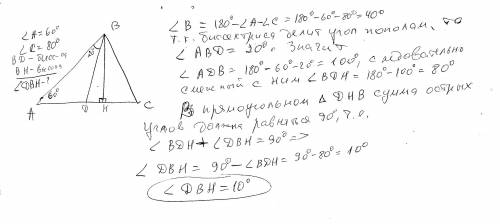 ∠A=60°
∠C=80°
BD-бисс-са
BH-высота
∠DBH-?
B
20°
60°
A
D
H
C
∠B = 180°-∠A-∠C = 180°-60°-80° = 40°
т.к. биссектриса делит угол пополам, то
∠ABD = 20°. Значит
∠ADB = 180°-60°-20° = 100°, следовательно
смежный с ним ∠BDH = 180°-100° = 80°
В прямоугольном Δ DHB сумма острых
углов должна равняться 90°, т.е.
∠BDH + ∠DBH = 90° =>
∠DBH = 90° - ∠BDH = 90°-80° = 10°
∠DBH = 10°